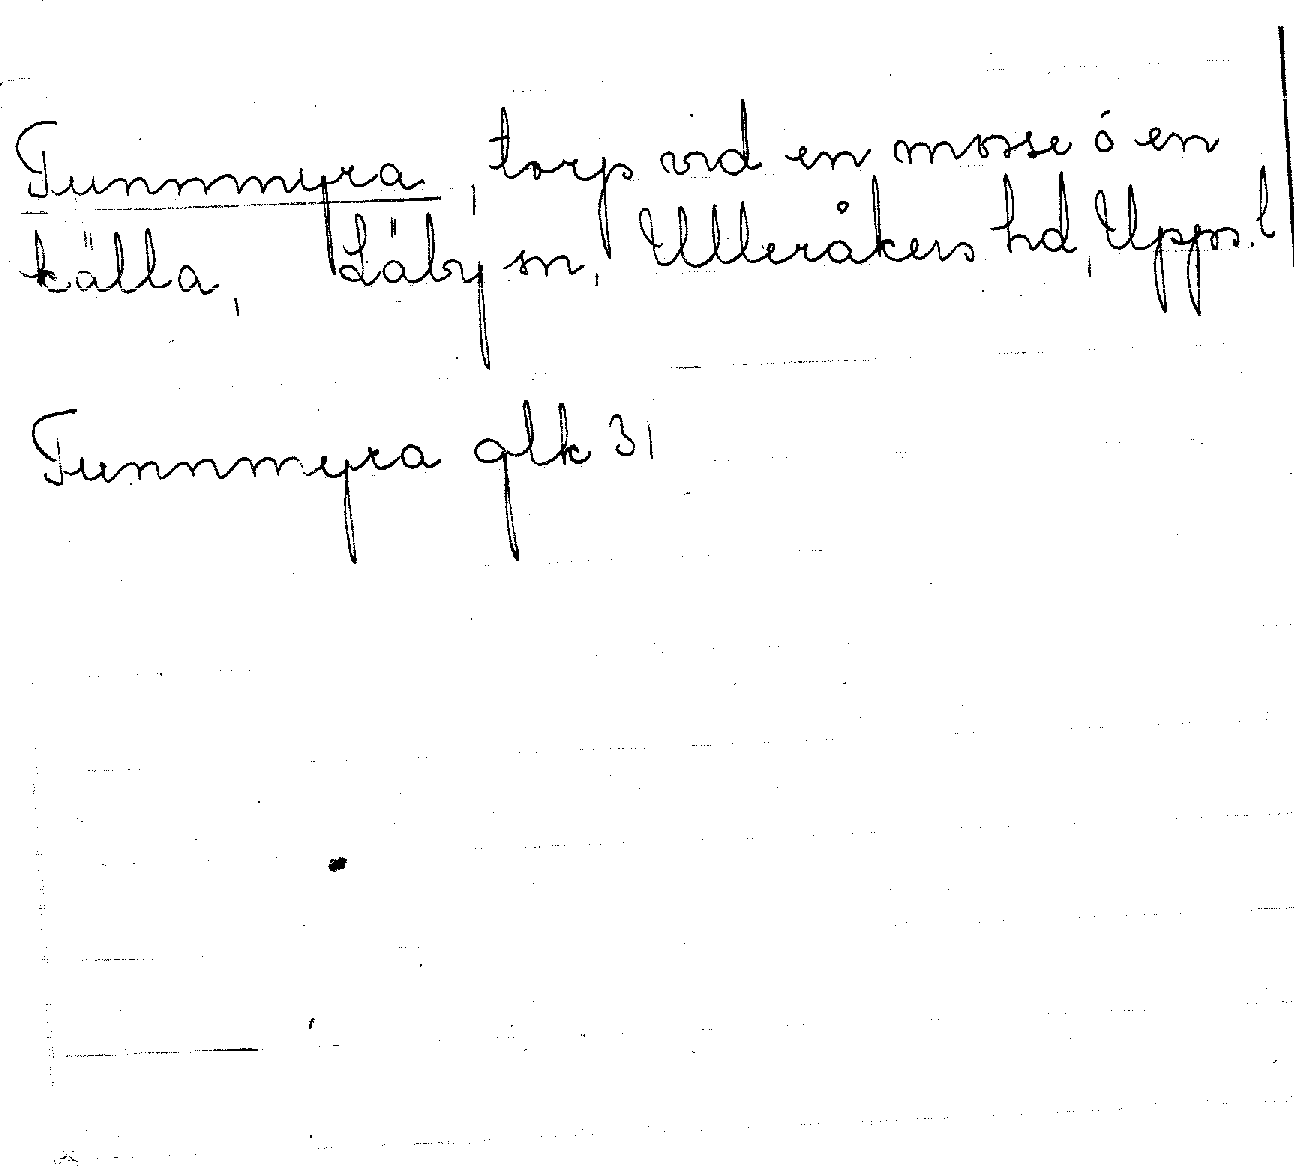 Tunnmyra, torp vid en mosse ó en
källa, Läby sn, Ulleråkers hd, Upps. l
Tunnmyra glk 31